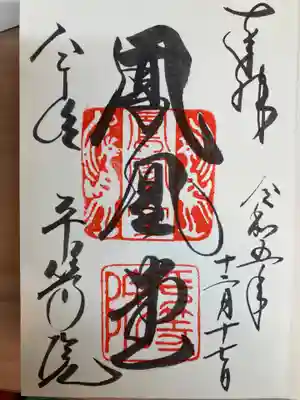 奉拝
令和五年
十二月十七日
鳳凰堂
平等院